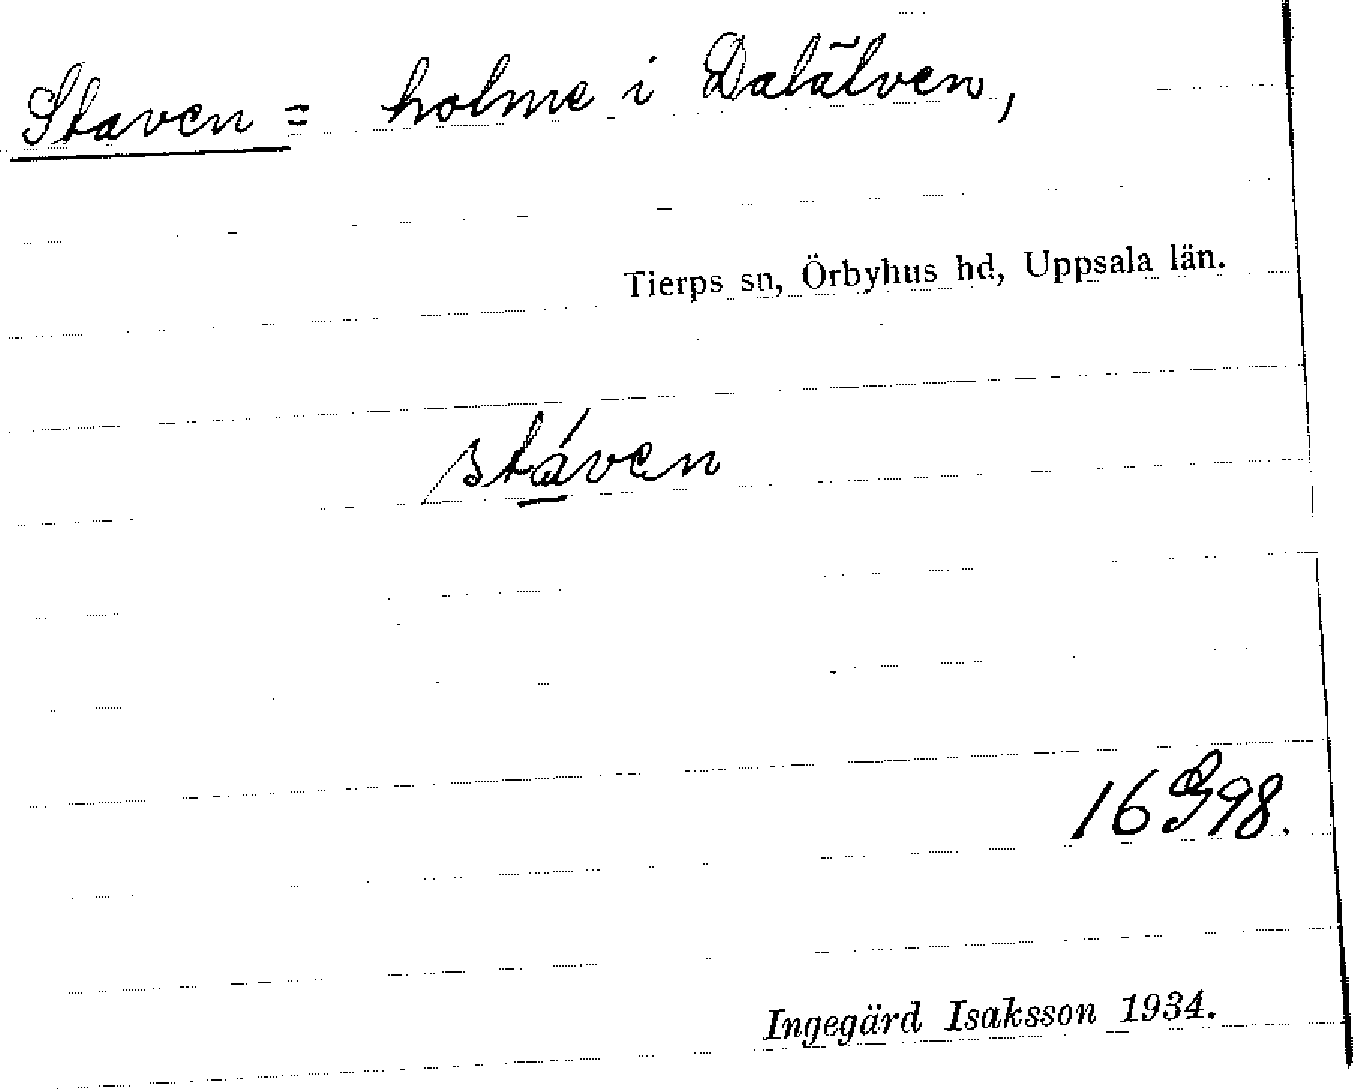 Staven = holme i Dalälven,
Tierps sn, Örbyhus hd, Uppsala län.
stáven
16G98.
Ingegärd Isaksson 1934.